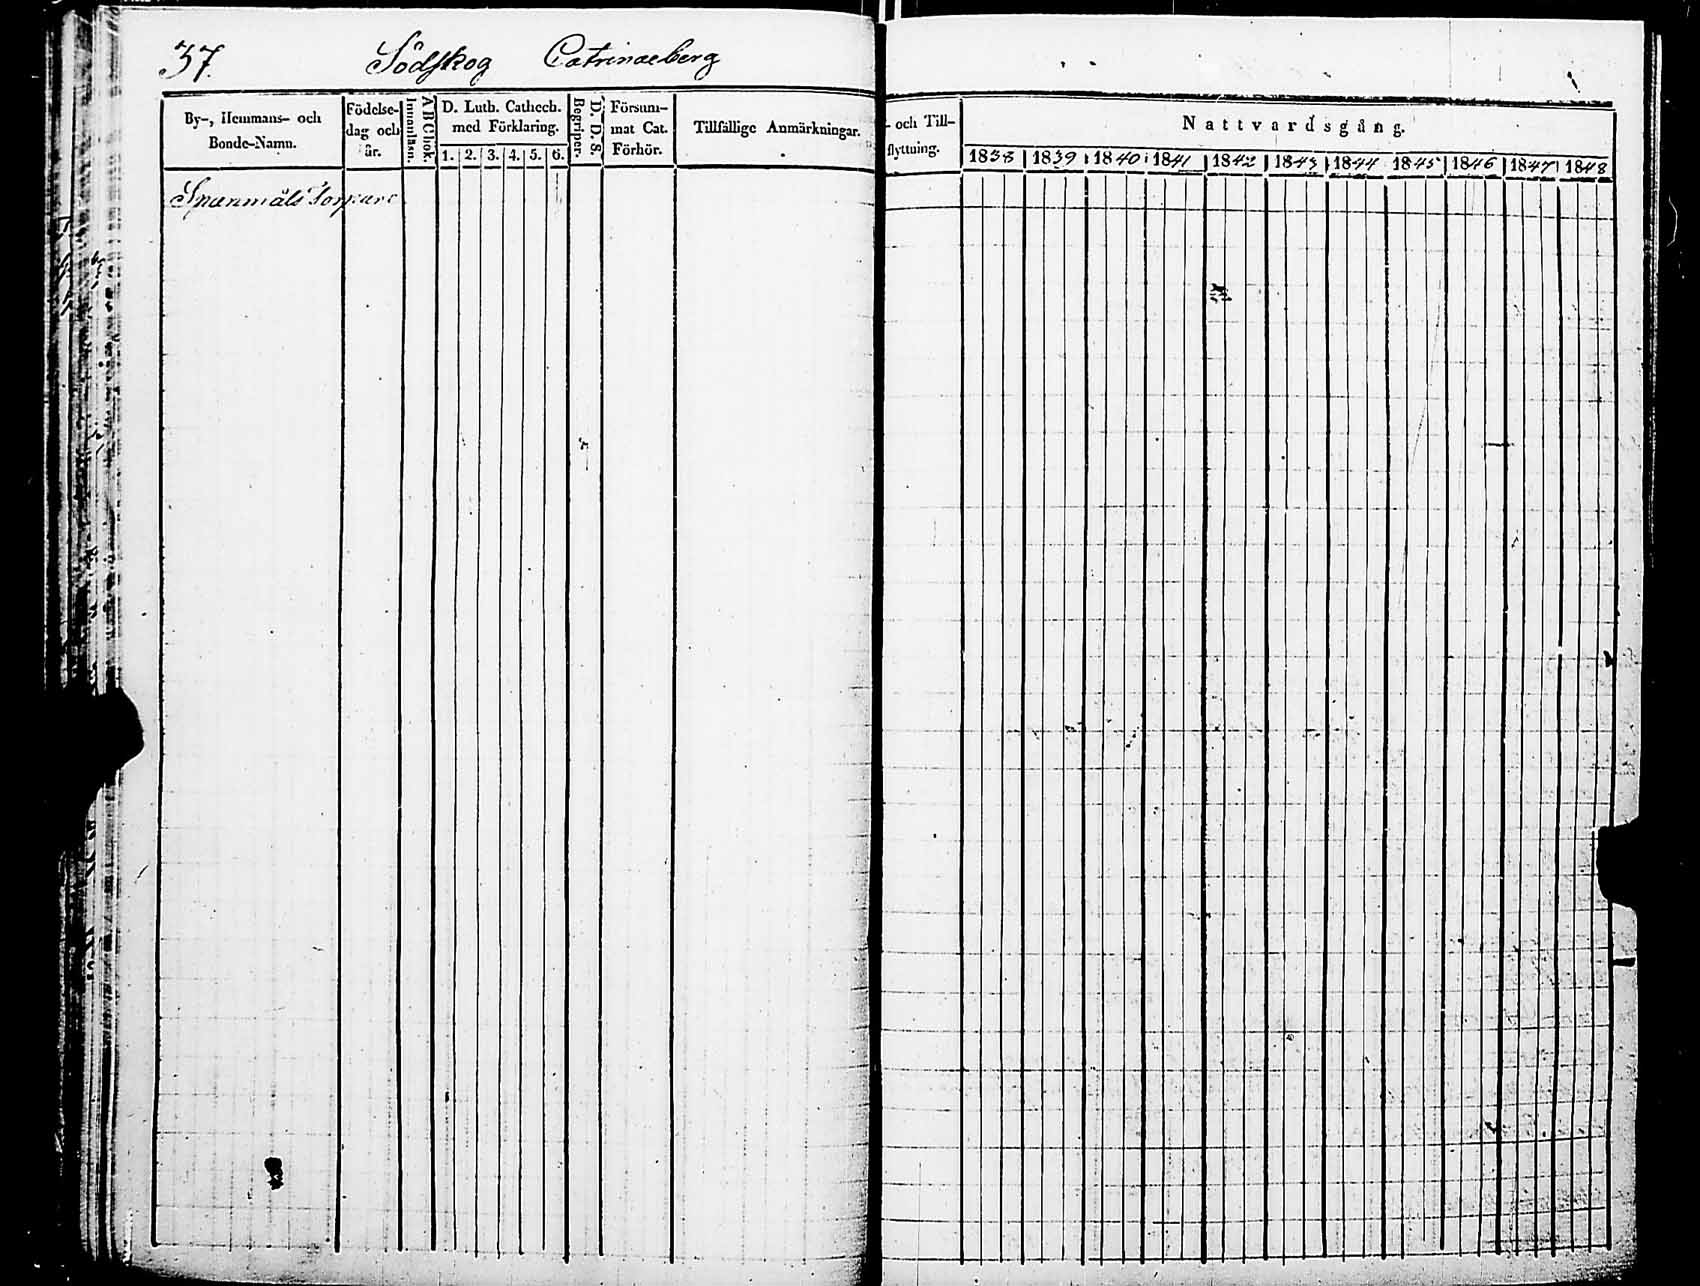 37. Södskog Catrinaeberg
By-, Hemmans- och Bonde-Namn.
Födelse-dag och år.
ABCbok. Innanläsn.
D. Luth. Cathech. med Förklaring.
1. 2. 3. 4. 5. 6.
D. D. S. Begriper.
Försum-mat Cat. Förhör.
Tillfällige Anmärkningar.
- och Till-flyttning.
Nattvardsgång.
1838 1839 1840 1841 1842 1843 1844 1845 1846 1847 1848
Spanmåls Torpare